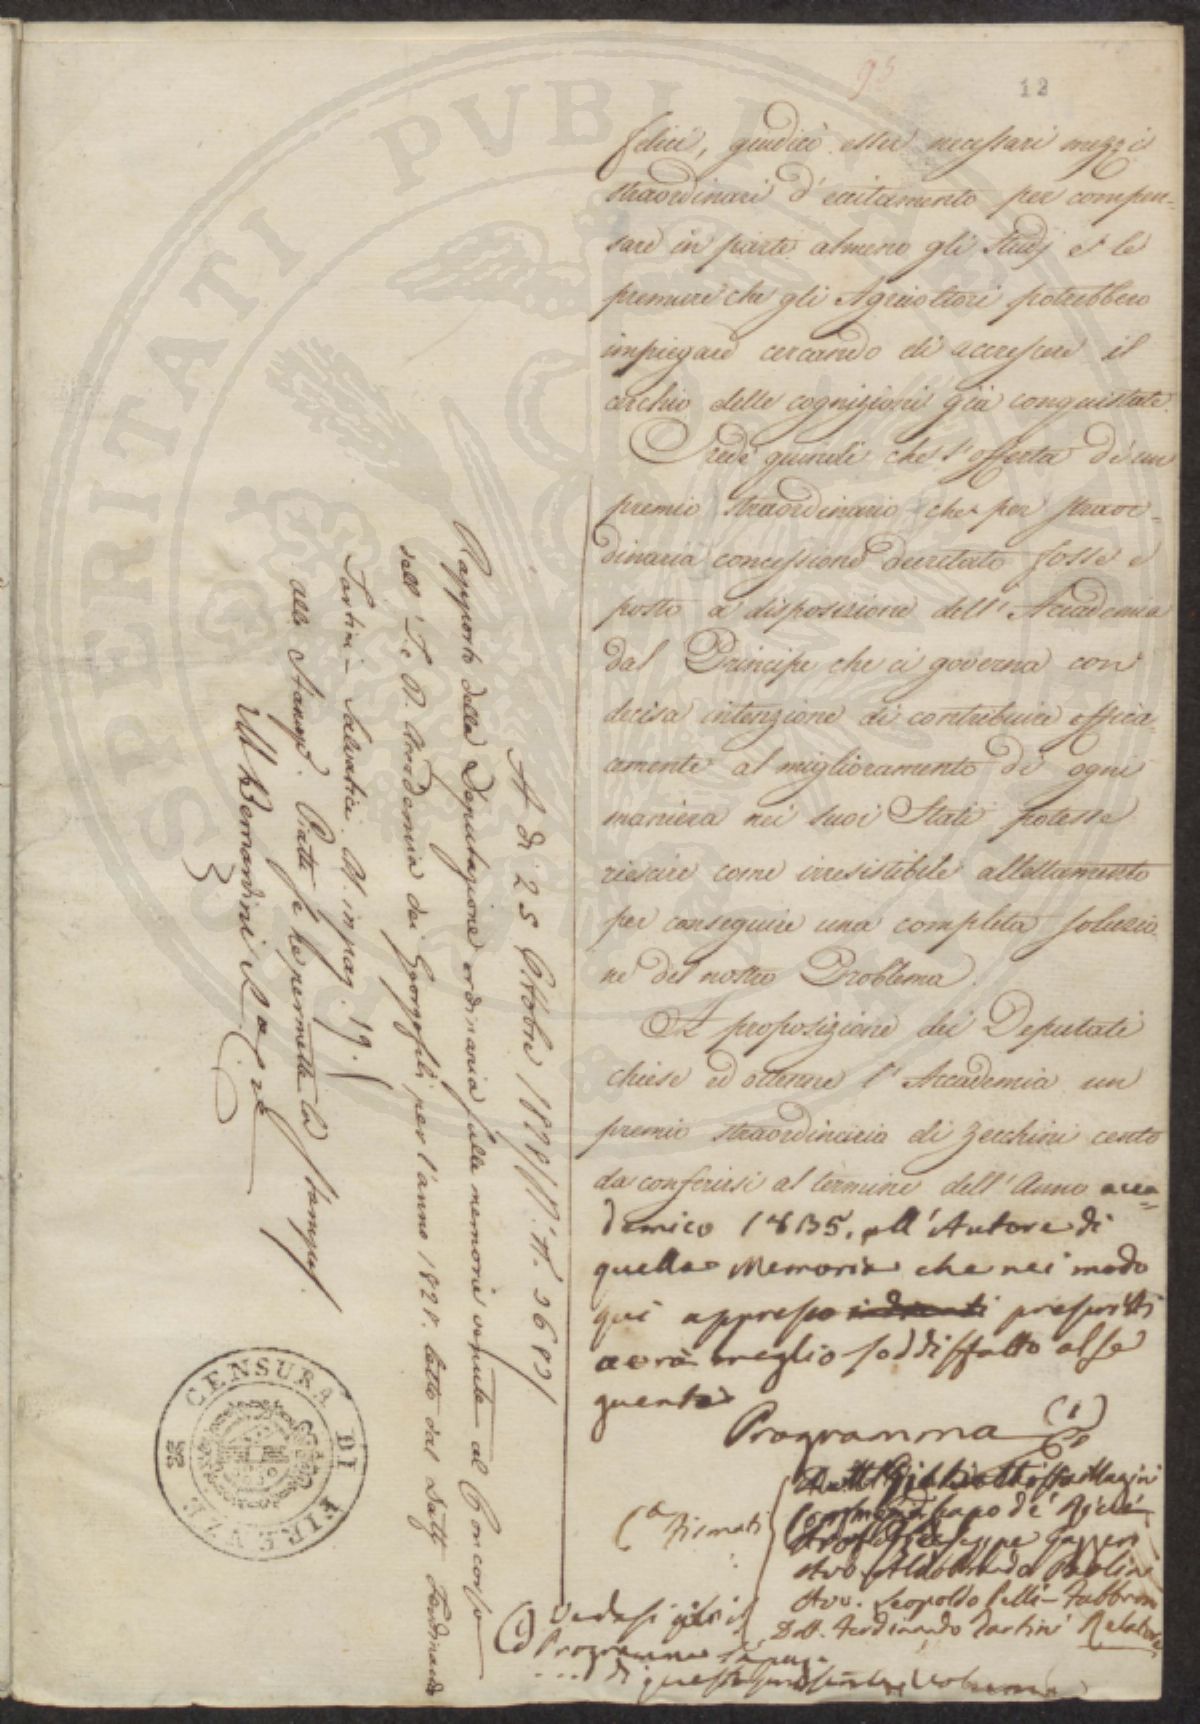 95
12
felici, giudicò esser necessari mezzi
straordinari d'eccitamento per compen-
sare in parte almeno gli studj e le
premure che gli Agricoltori potrebbero
impiegare cercando di accrescere il
cerchio delle cognizioni già conquistate.
Credè quindi che l'offerta di un
premio straordinario che per straor-
dinaria concessione decretato fosse e
posto a disposizione dell'Accademia
dal Principe che ci governa con
decisa intenzione di contribuire effica-
cemente al miglioramento di ogni
maniera nei suoi Stati potesse
riescire come irresistibile allettamento
per conseguire una completa soluzio-
ne del nostro Problema.
A proposizione dei Deputati
chiese ed ottenne l'Accademia un
premio straordinario di Zecchini cento
da conferirsi al termine dell'Anno acca=
demico 1835, all'Autore di
quella Memoria che nei modi
qui appresso indicati prescritti
avrà meglio soddisfatto al se
guente
Programma (1)
Firmati
Cosimo de' Ridolfi
Giuseppe Gazzeri
Avv. Aldobrando Paolini
Avv. Leopoldo Pelli-Fabbroni
Dott. Ferdinando Tartini Relatore
(1) Vedasi
Programma
di questo volume
A dì 25 Ottobre 1828 N.° 3689
Rapporto della Deputazione ordinaria sulle memorie venute al Concorso
dell'I. e R. Accademia dei Georgofili per l'anno 1828. letto dal Dott. Ferdinando
Tartini-Salvatici. M. in pag. 19.
alla Stamp. Piatti se ne permette la stampa
M Bernardini
CENSURA DI FIRENZE
PROSPERITATI PUBLICAE